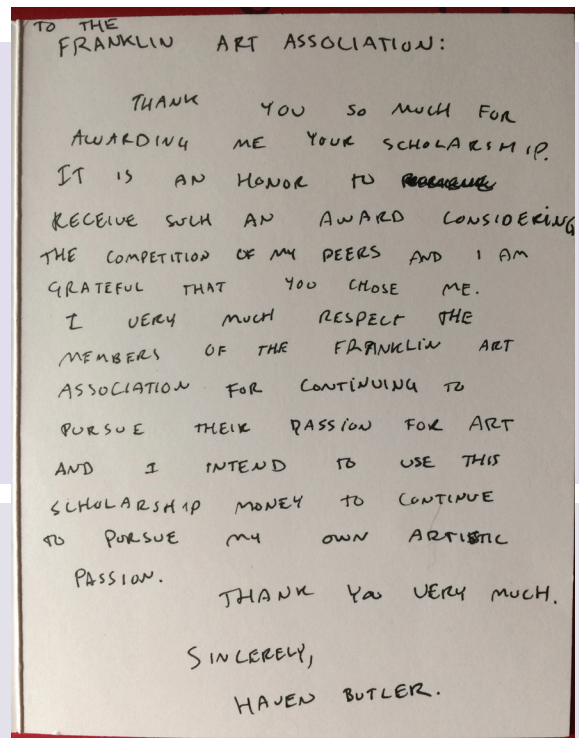 TO THE
FRANKLIN ART ASSOCIATION:
THANK YOU SO MUCH FOR
AWARDING ME YOUR SCHOLARSHIP.
IT IS AN HONOR TO
RECEIVE SUCH AN AWARD CONSIDERING
THE COMPETITION OF MY PEERS AND I AM
GRATEFUL THAT YOU CHOSE ME.
I VERY MUCH RESPECT THE
MEMBERS OF THE FRANKLIN ART
ASSOCIATION FOR CONTINUING TO
PURSUE THEIR PASSION FOR ART
AND I INTEND TO USE THIS
SCHOLARSHIP MONEY TO CONTINUE
TO PURSUE MY OWN ARTISTIC
PASSION.
THANK YOU VERY MUCH.
SINCERELY,
HAVEN BUTLER.